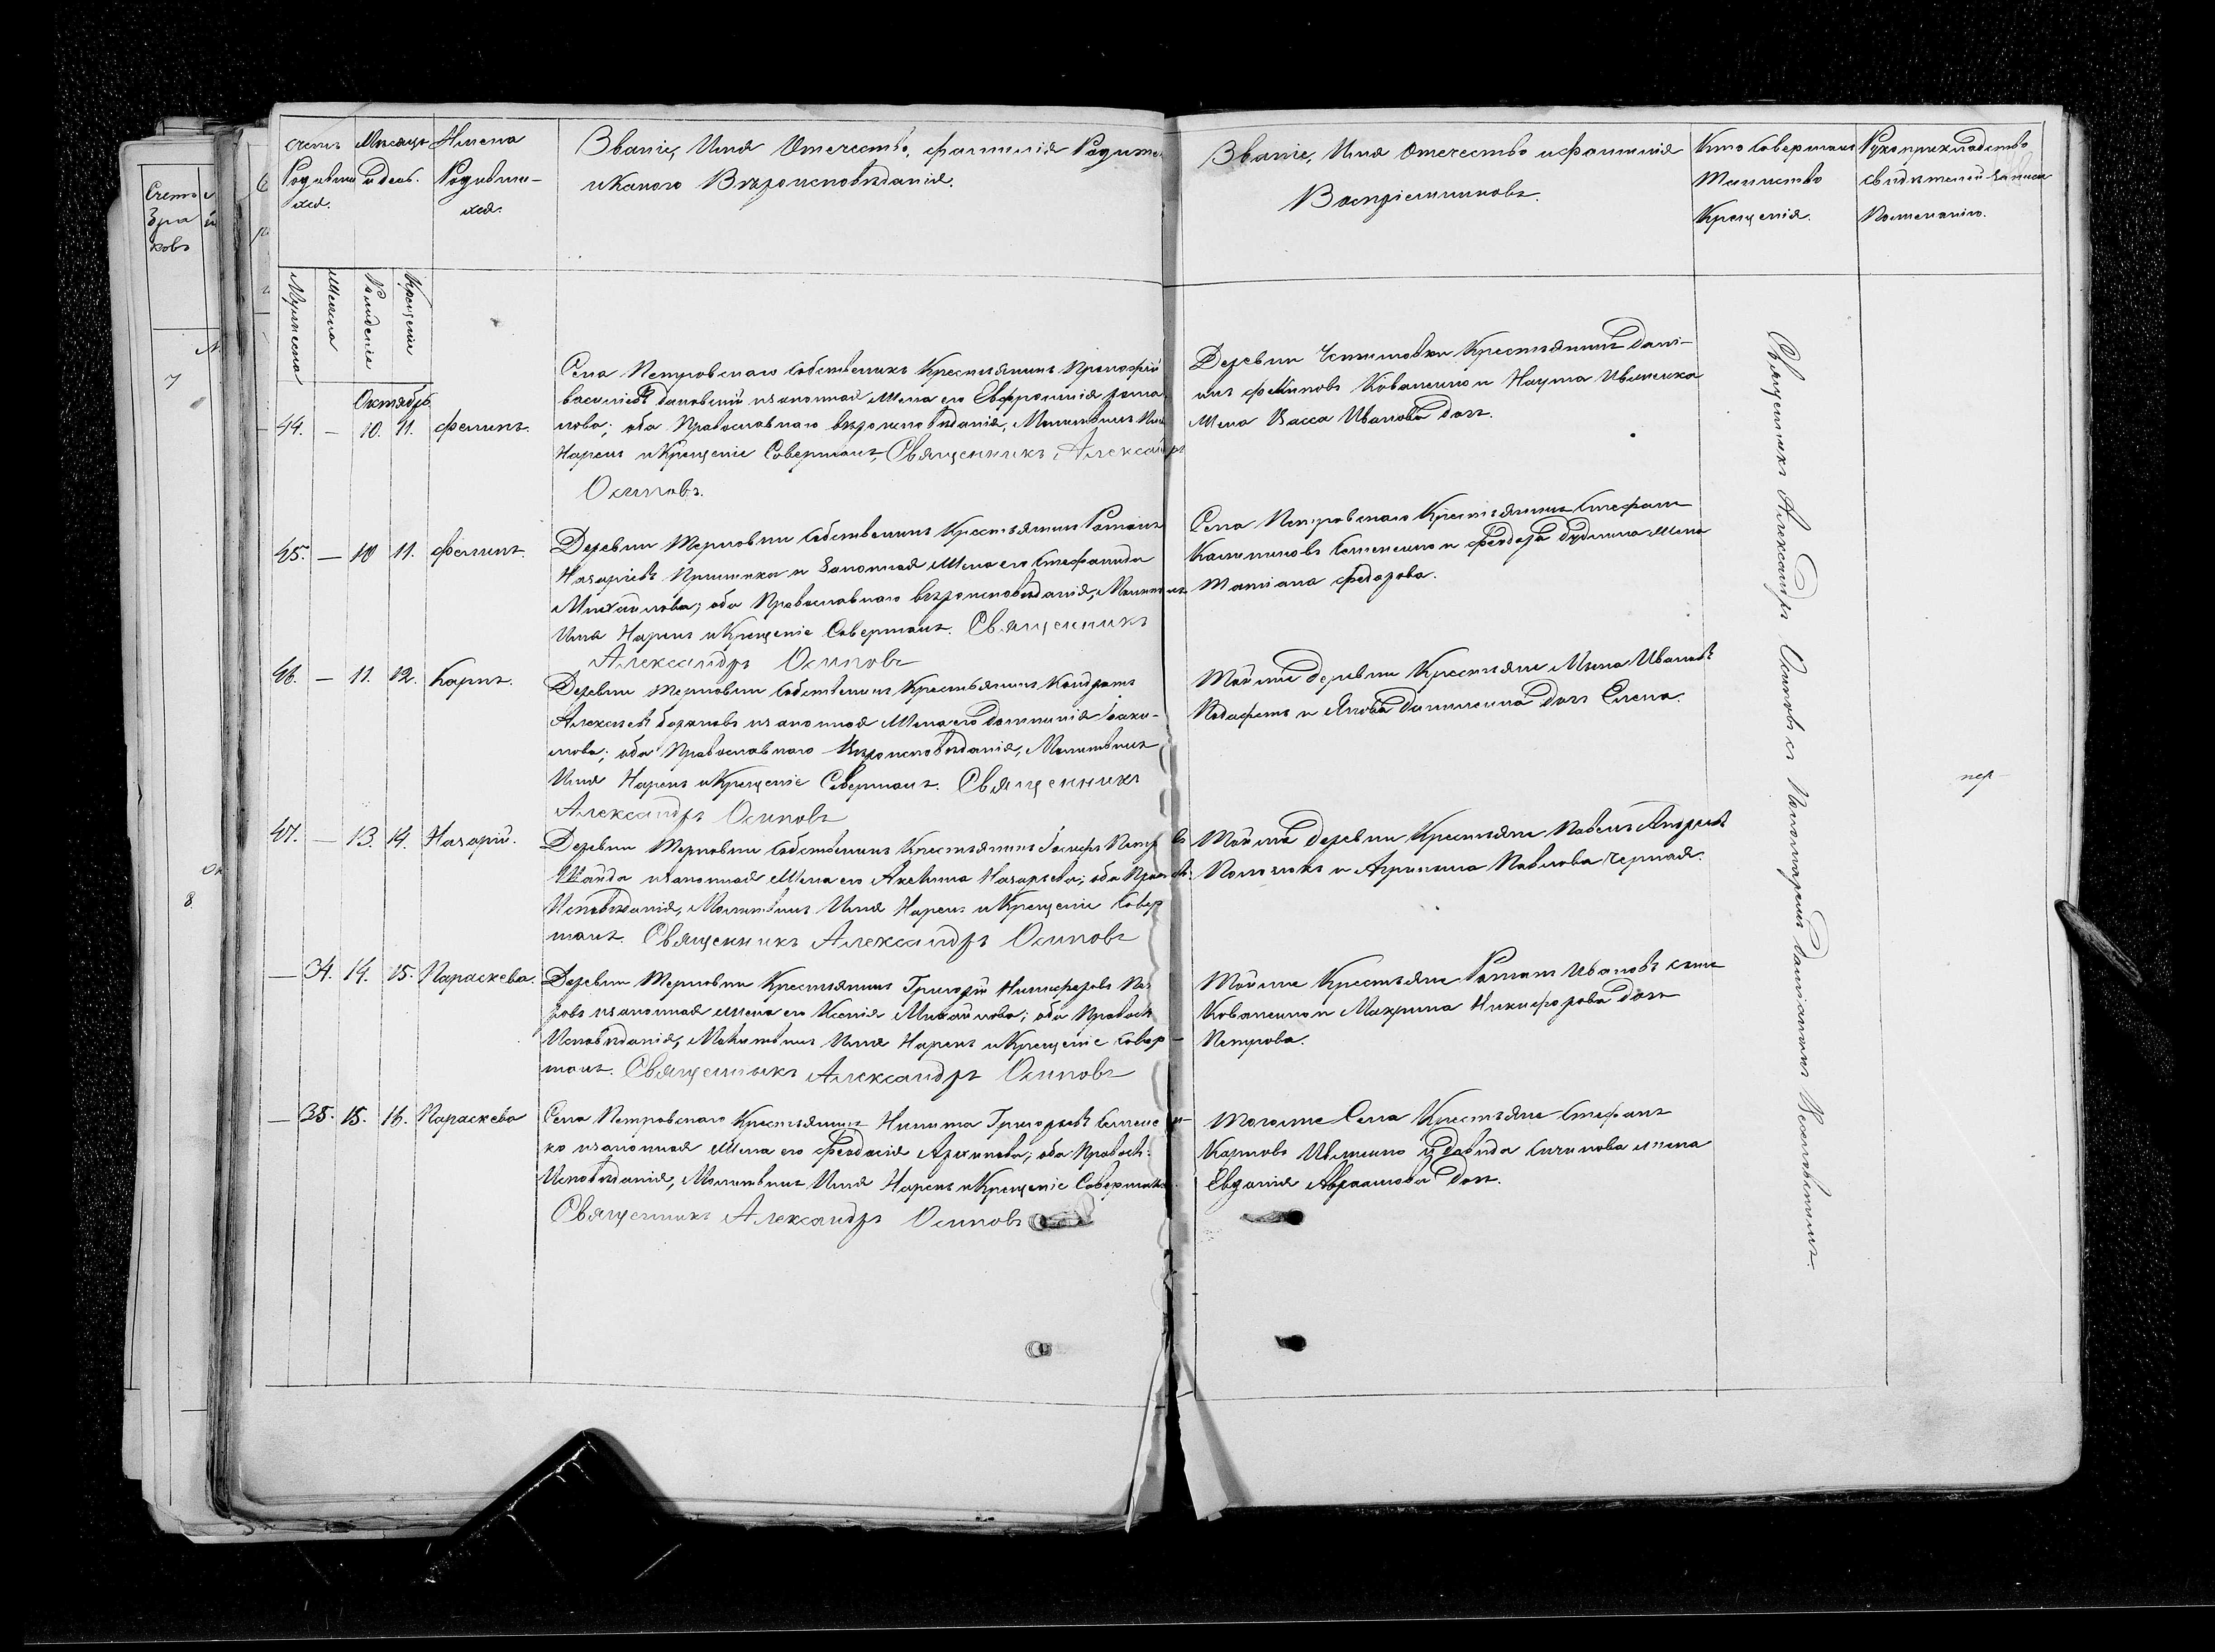 Счетъ Родившихся.
Мѣсяцъ и день.
Имена Родившихся.
Званіе, Имя Отечество, фамилія Родите
и какого Вѣроисповѣданія.
Званіе, Имя Отечество и Фамилія
Воспріемниковъ.
Кто Совершалъ
Таинство
Крещенія.
Рукоприкладство
свидѣтелей записи
По желанію.
Счетъ
Бра
ковъ
7
8.
Мужеска
Женска
Рожденіе
Крещеніе
Октябрь
44. — 10. 11. Филипъ.
Села Петровскаго Собственникъ Крестьянинъ Прокофій
Василіевъ и законная Жена его Евфросинія
нова; оба Православнаго вѣроисповѣданія, Молитвилъ Имя
Нарекъ и Крещеніе Совершалъ, Священникъ Александръ
Осиповъ.
Деревни Крестьянинъ Дані-
илъ Коваленко и Наума Ивженка
Жена Васса Иванова Дочь.
45. — 10 11. Филипъ.
Деревни Терновки Собственникъ Крестьянинъ Романъ
Назаріевъ и Законная Жена его Стефанида
Михайлова; оба Православнаго вѣроисповѣданія, Молитвилъ
Имя Нарекъ и Крещеніе Совершалъ. Священникъ
Александръ Осиповъ
Села Петровскаго Крестьянинъ Стефанъ
Калиниковъ Семененко и Феодора Жена
Татіана Федорова.
46. — 11. 12. Карпъ.
Деревни Терновки Собственникъ Крестьянинъ Кондратъ
Алексѣевъ и законная Жена его Домникія Іаки-
мова; оба Православнаго Вѣроисповѣданія, Молитвилъ
Имя Нарекъ и Крещеніе Совершалъ. Священникъ
Александръ Осиповъ
Той же деревни Крестьяне Ивановъ
и Якова Дочь Елена.
47. — 13. 14. Назарій.
Деревни Терновки Собственникъ Крестьянинъ Іосифъ Петровъ
и законная Жена его Акелина Назарьева; оба Правосл.
Исповѣданія, Молитвилъ Имя Нарекъ и Крещеніе Совер
шалъ. Священникъ Александръ Осиповъ
Той же деревни Крестьяне Павелъ Андреевъ
и Агрипина Павлова Черная.
— 34. 14. 15. Параскева.
Деревни Терновки Крестьянинъ Григорій Никифоровъ Пет
ровъ и законная жена его Ксенія Михайлова; оба Правосл
Исповѣданія, Молитвилъ Имя Нарекъ и Крещеніе Совер-
шалъ. Священникъ Александръ Осиповъ
Той же Крестьяне Романъ Ивановъ сынъ
Коваленко и Макрина Никифорова Дочь
Петрова.
— 35. 15. 16. Параскева
Села Петровскаго Крестьянинъ Никита Григорьевъ Семенен
ко и законная Жена его Феодосія Архипова; оба Правосл:
Исповѣданія, Молитвилъ Имя Нарекъ и Крещеніе Совершалъ.
Священникъ Александръ Осиповъ
Тогоже Села Крестьяне Стефанъ
Карповъ Ивженко и Давида жена
Евдокія Авраамова Дочь.
Священникъ Александръ Осиповъ съ Пономаремъ